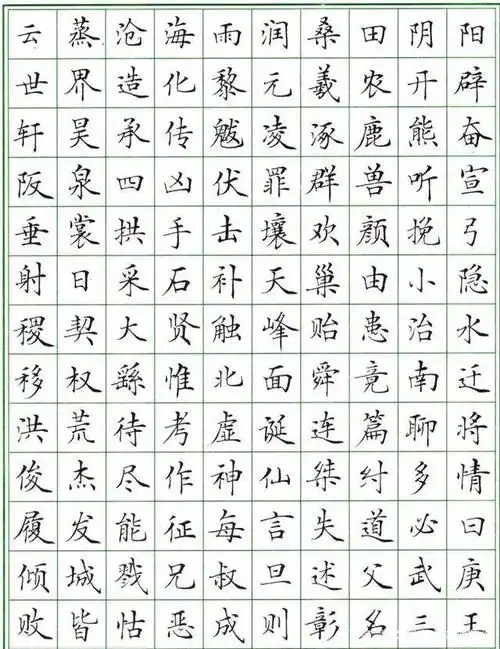 云蒸沧海雨润桑田阴阳
世界造化黎元羲农开辟
轩昊承传魃凌涿鹿熊奋
阪泉四凶伏罪群兽听宣
垂裳拱手击壤欢颜挽弓
射日采石补天巢由小隐
稷契大贤触峰贻患治水
移权繇惟北面舜竟南迁
洪荒待考虚诞连篇聊将
俊杰尽作神仙桀纣多情
履发能征每言失道必曰
倾城戮兄叔旦述父武庚
败皆怙恶成则彰名三王